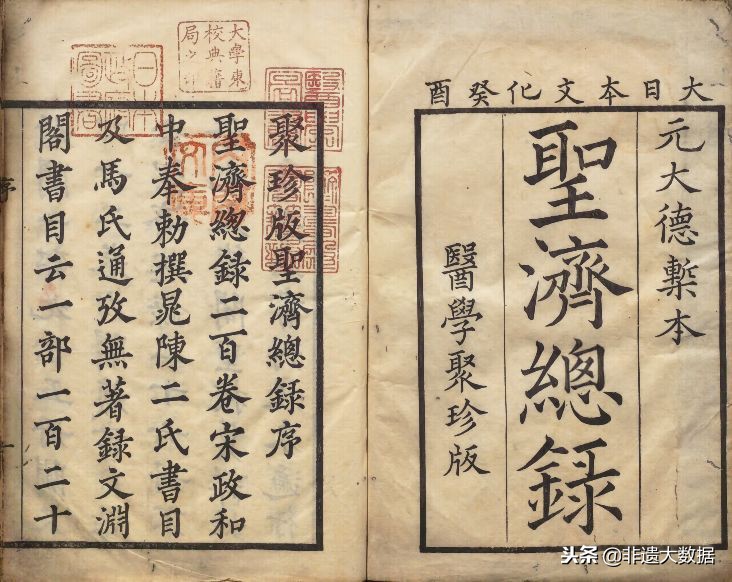 大日本文化癸酉
元大德槧本
聖濟總録
醫學聚珍版
聚珍版聖濟總録序
聖濟總録二百卷宋政和
中奉勅撰晁陳二氏書目
及馬氏通攷無著録文淵
閣書目云一部一百二十
序
一
大學東
校典籍
局之印
头条 @非遗大数据